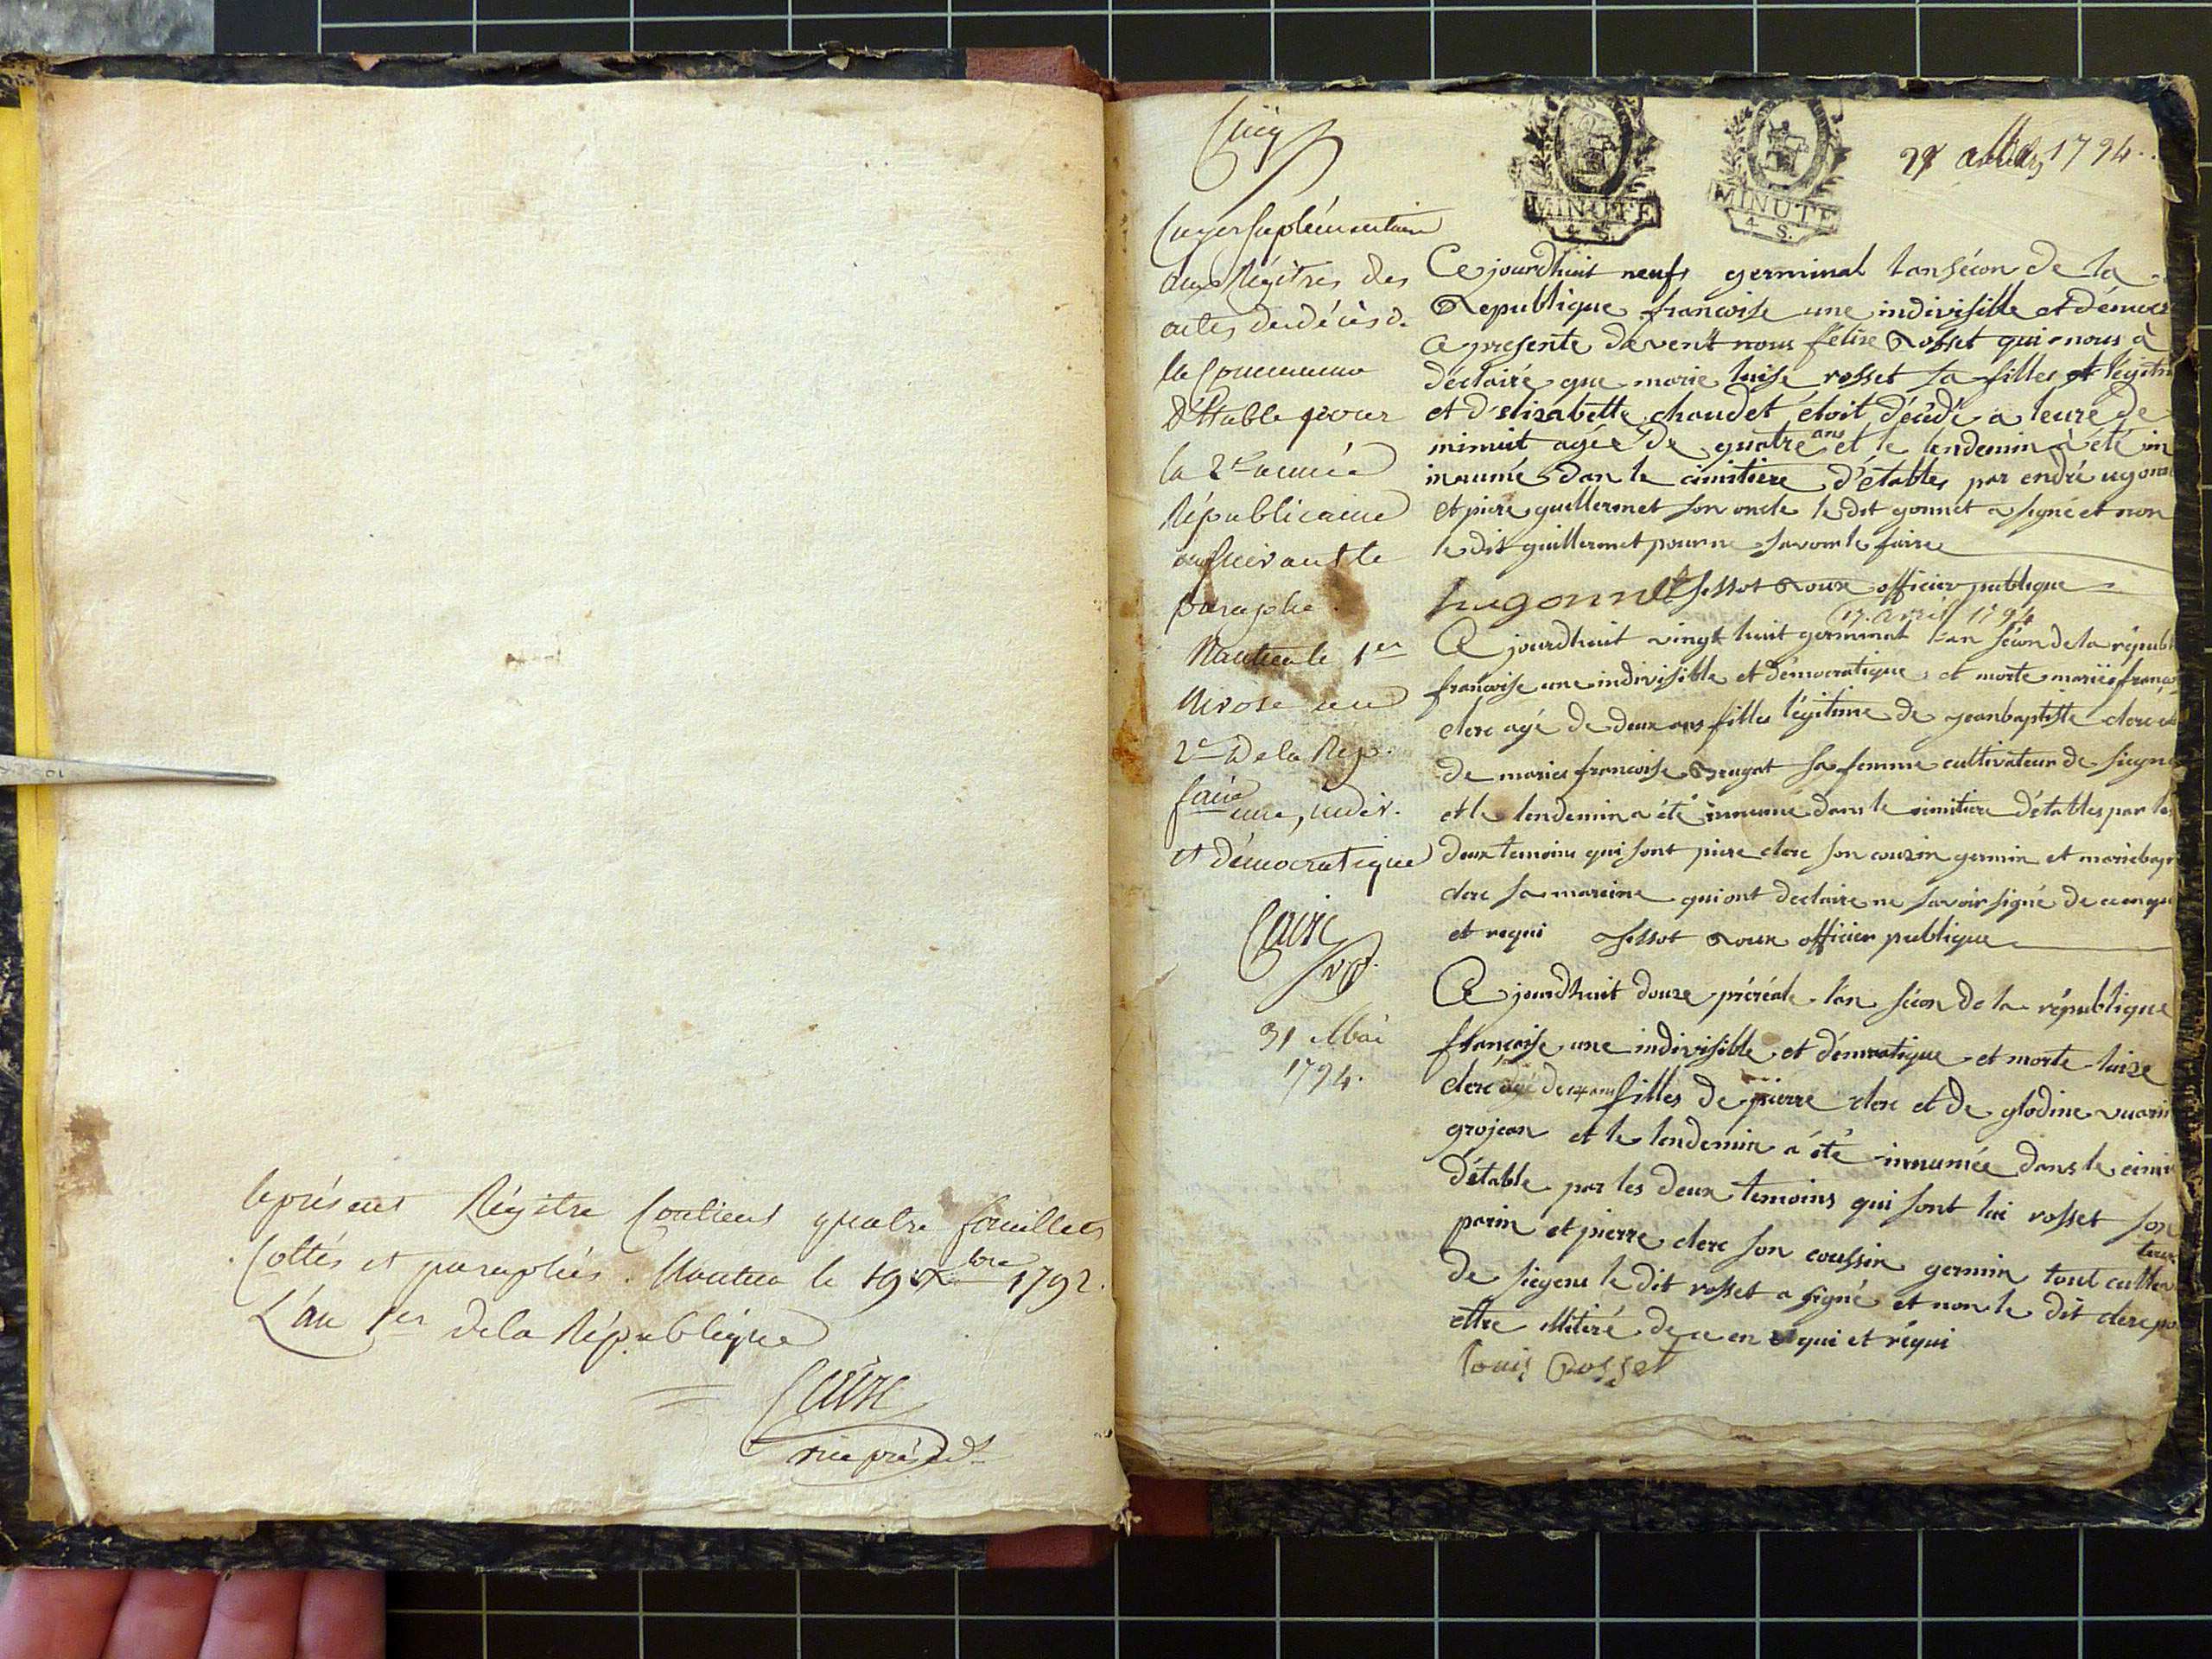 le présent Régitre Contient quatre feuillets
Cottés et paraphés. Nantua le 19 Xbre 1792.
L'an 1er de la République
Caire
vice présidt
Cinq
MINUTE
4 S.
MINUTE
4 S.
1794.
Cayer suplémentaire
aux Régitres des
actes de décès de
la Commune
d'Etable pour
la 2e année
Républicaine
suivant le
paraphe.
Nantua le 1er
Nivose an
2e de la Rép.
faise une, indiv.
et démocratique
Caire
vp.
31 Mai
1794.
Ce jourdhuit neufs germinal lan sécon de la
Republique francoise une indivisible et démocr
a presente davent nous félise Rosset qui nous à
déclairé que marie luise rosset sa filles et légitim
et d'elisabette chaudet étoit décidé a leure de
minuit agée de quatre ans et le lendemin à été in
innumé dan le cimitiere d'étables par endré ugonn
et piere guillermet son oncle le dit gonnet a signé et non
le dit guillermet pour ne savoir le faire
hugonnet Jossot Roux officier publique
17. avril 1794
Ce jourdhuit vingt huit germinal l'an sécon de la républi
francoise une indivisible et démocratique et morte marie franço
clerc agé de deux ans filles légitime de jeanbaptiste clerc et
de marie francoise Brugat sa femme cultivateur de siegne
et le lendemin a été innumé dans le cimitiere d'étables par les
deux temoins qui sont piere clerc son couzin germin et marie
clerc sa mareine qui ont declaire ne savoir signé de ce enqui
et requi Jossot Roux officier publique
Ce jourdhuit douze préréale l'an sécon de la république
francoise une indivisible et démocratique et morte luize
clerc agé de 14 ans filles de pierre clerc et de glodine vuarin
grojean et le lendemin a été innumée dans le cimi
d'étable par les deux temoins qui sont lui rosset son
parin et pierre clerc son coussin germin tout cultiva
teur
de siegene le dit rosset a signé et non le dit clerc pour
ettre illitéré de ce en equi et réqui
louis Rosset